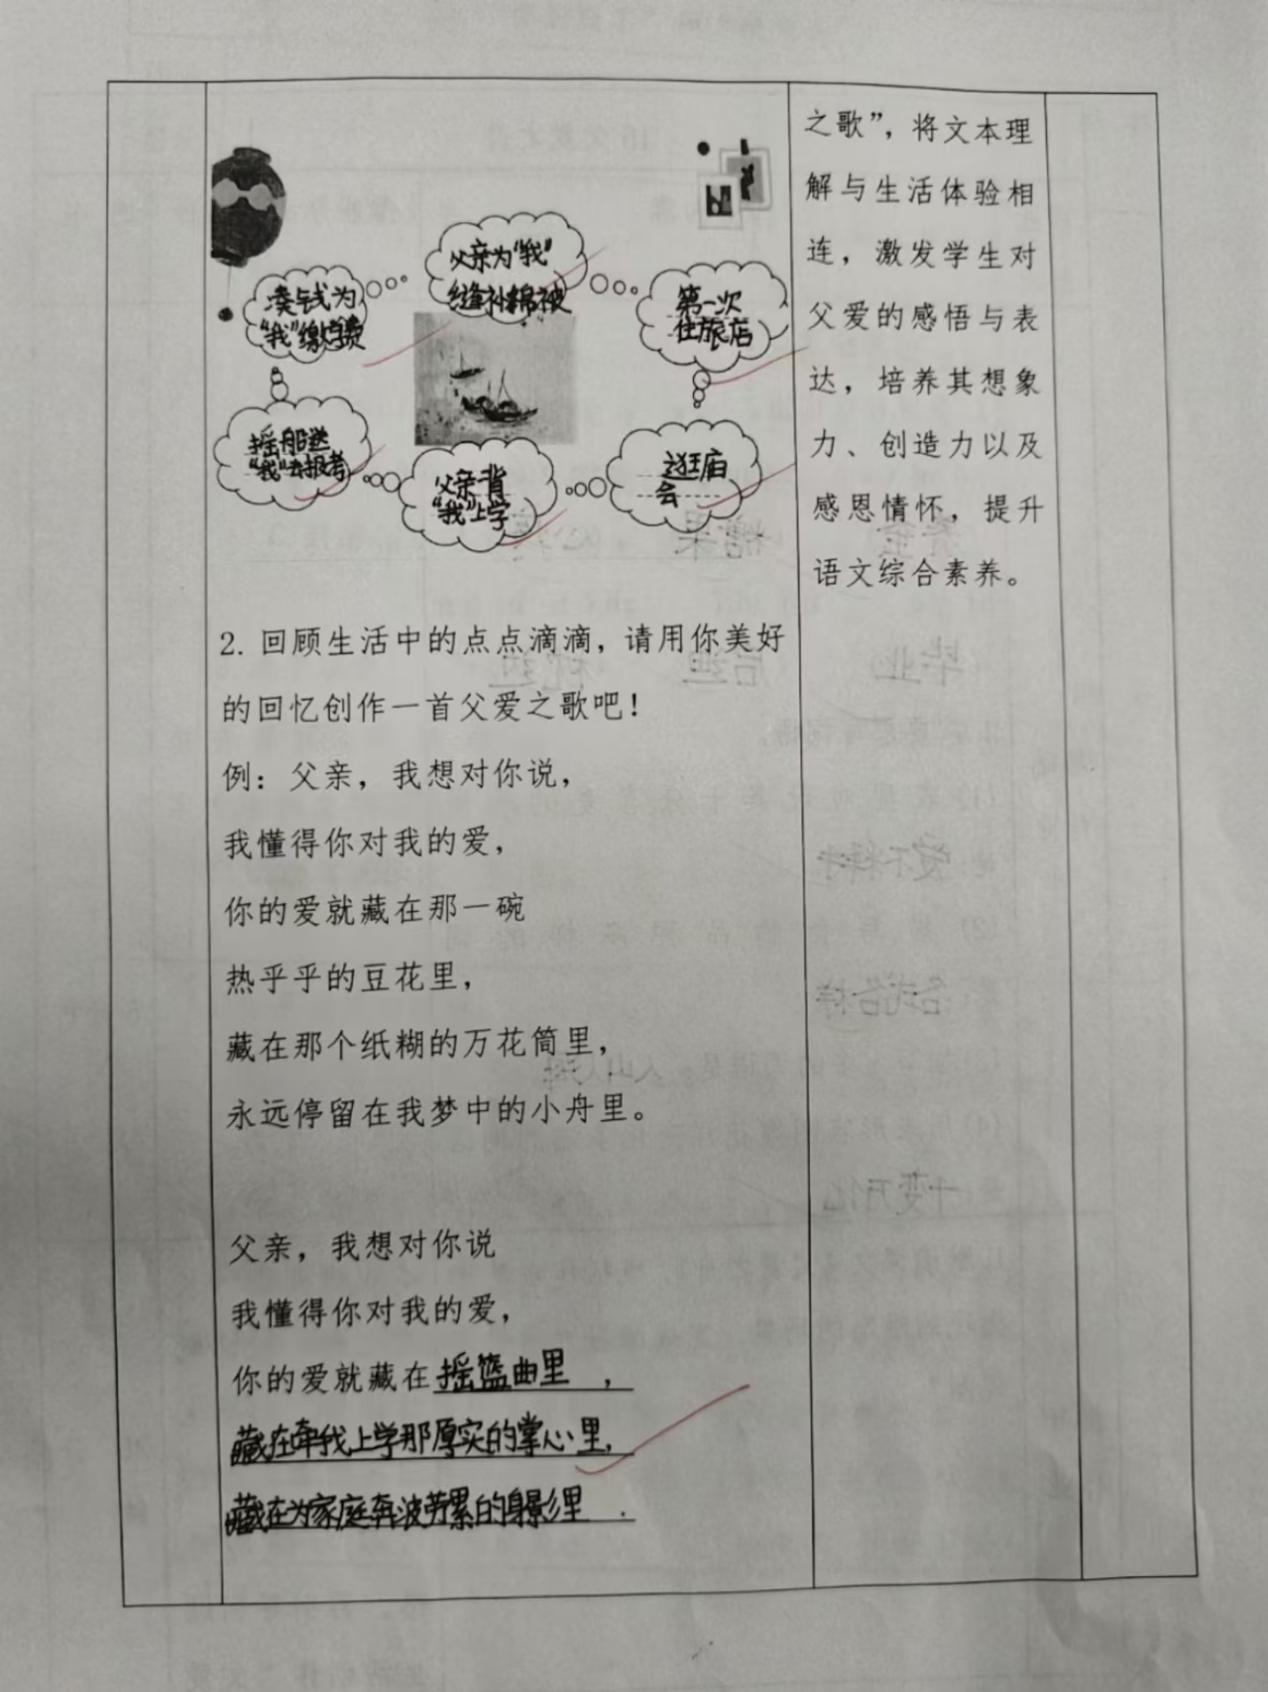 父亲为“我”
缝补棉被
第一次
住旅店
逛庙
会
父亲背
“我”上学
摇船送
“我”去报考
凑钱为
“我”缴学费
2. 回顾生活中的点点滴滴，请用你美好
的回忆创作一首父爱之歌吧！
例：父亲，我想对你说，
我懂得你对我的爱，
你的爱就藏在那一碗
热乎乎的豆花里，
藏在那个纸糊的万花筒里，
永远停留在我梦中的小舟里。
父亲，我想对你说
我懂得你对我的爱，
你的爱就藏在摇篮曲里，
藏在牵我上学那厚实的掌心里，
藏在为家庭奔波劳累的身影里.
之歌”，将文本理
解与生活体验相
连，激发学生对
父爱的感悟与表
达，培养其想象
力、创造力以及
感恩情怀，提升
语文综合素养。